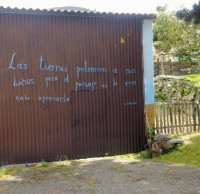 Las tierras pertenecen a sus
dueños, pero el paisaje es de quien
sabe apreciarlo